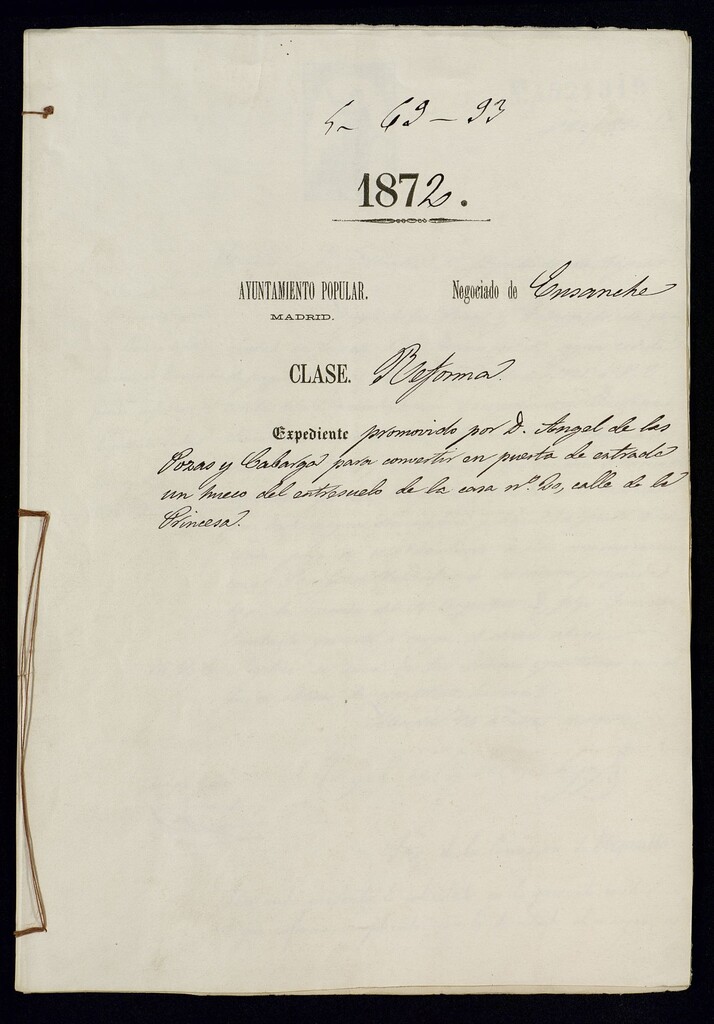 5- 69-93
1872.
AYUNTAMIENTO POPULAR.
MADRID.
Negociado de Ensanche
CLASE. Reforma.
Expediente promovido por D. Angel de las
Pozas y Cabarga para convertir en puerta de entrada
un hueco del entresuelo de la casa nº. 20, calle de la
Princesa.